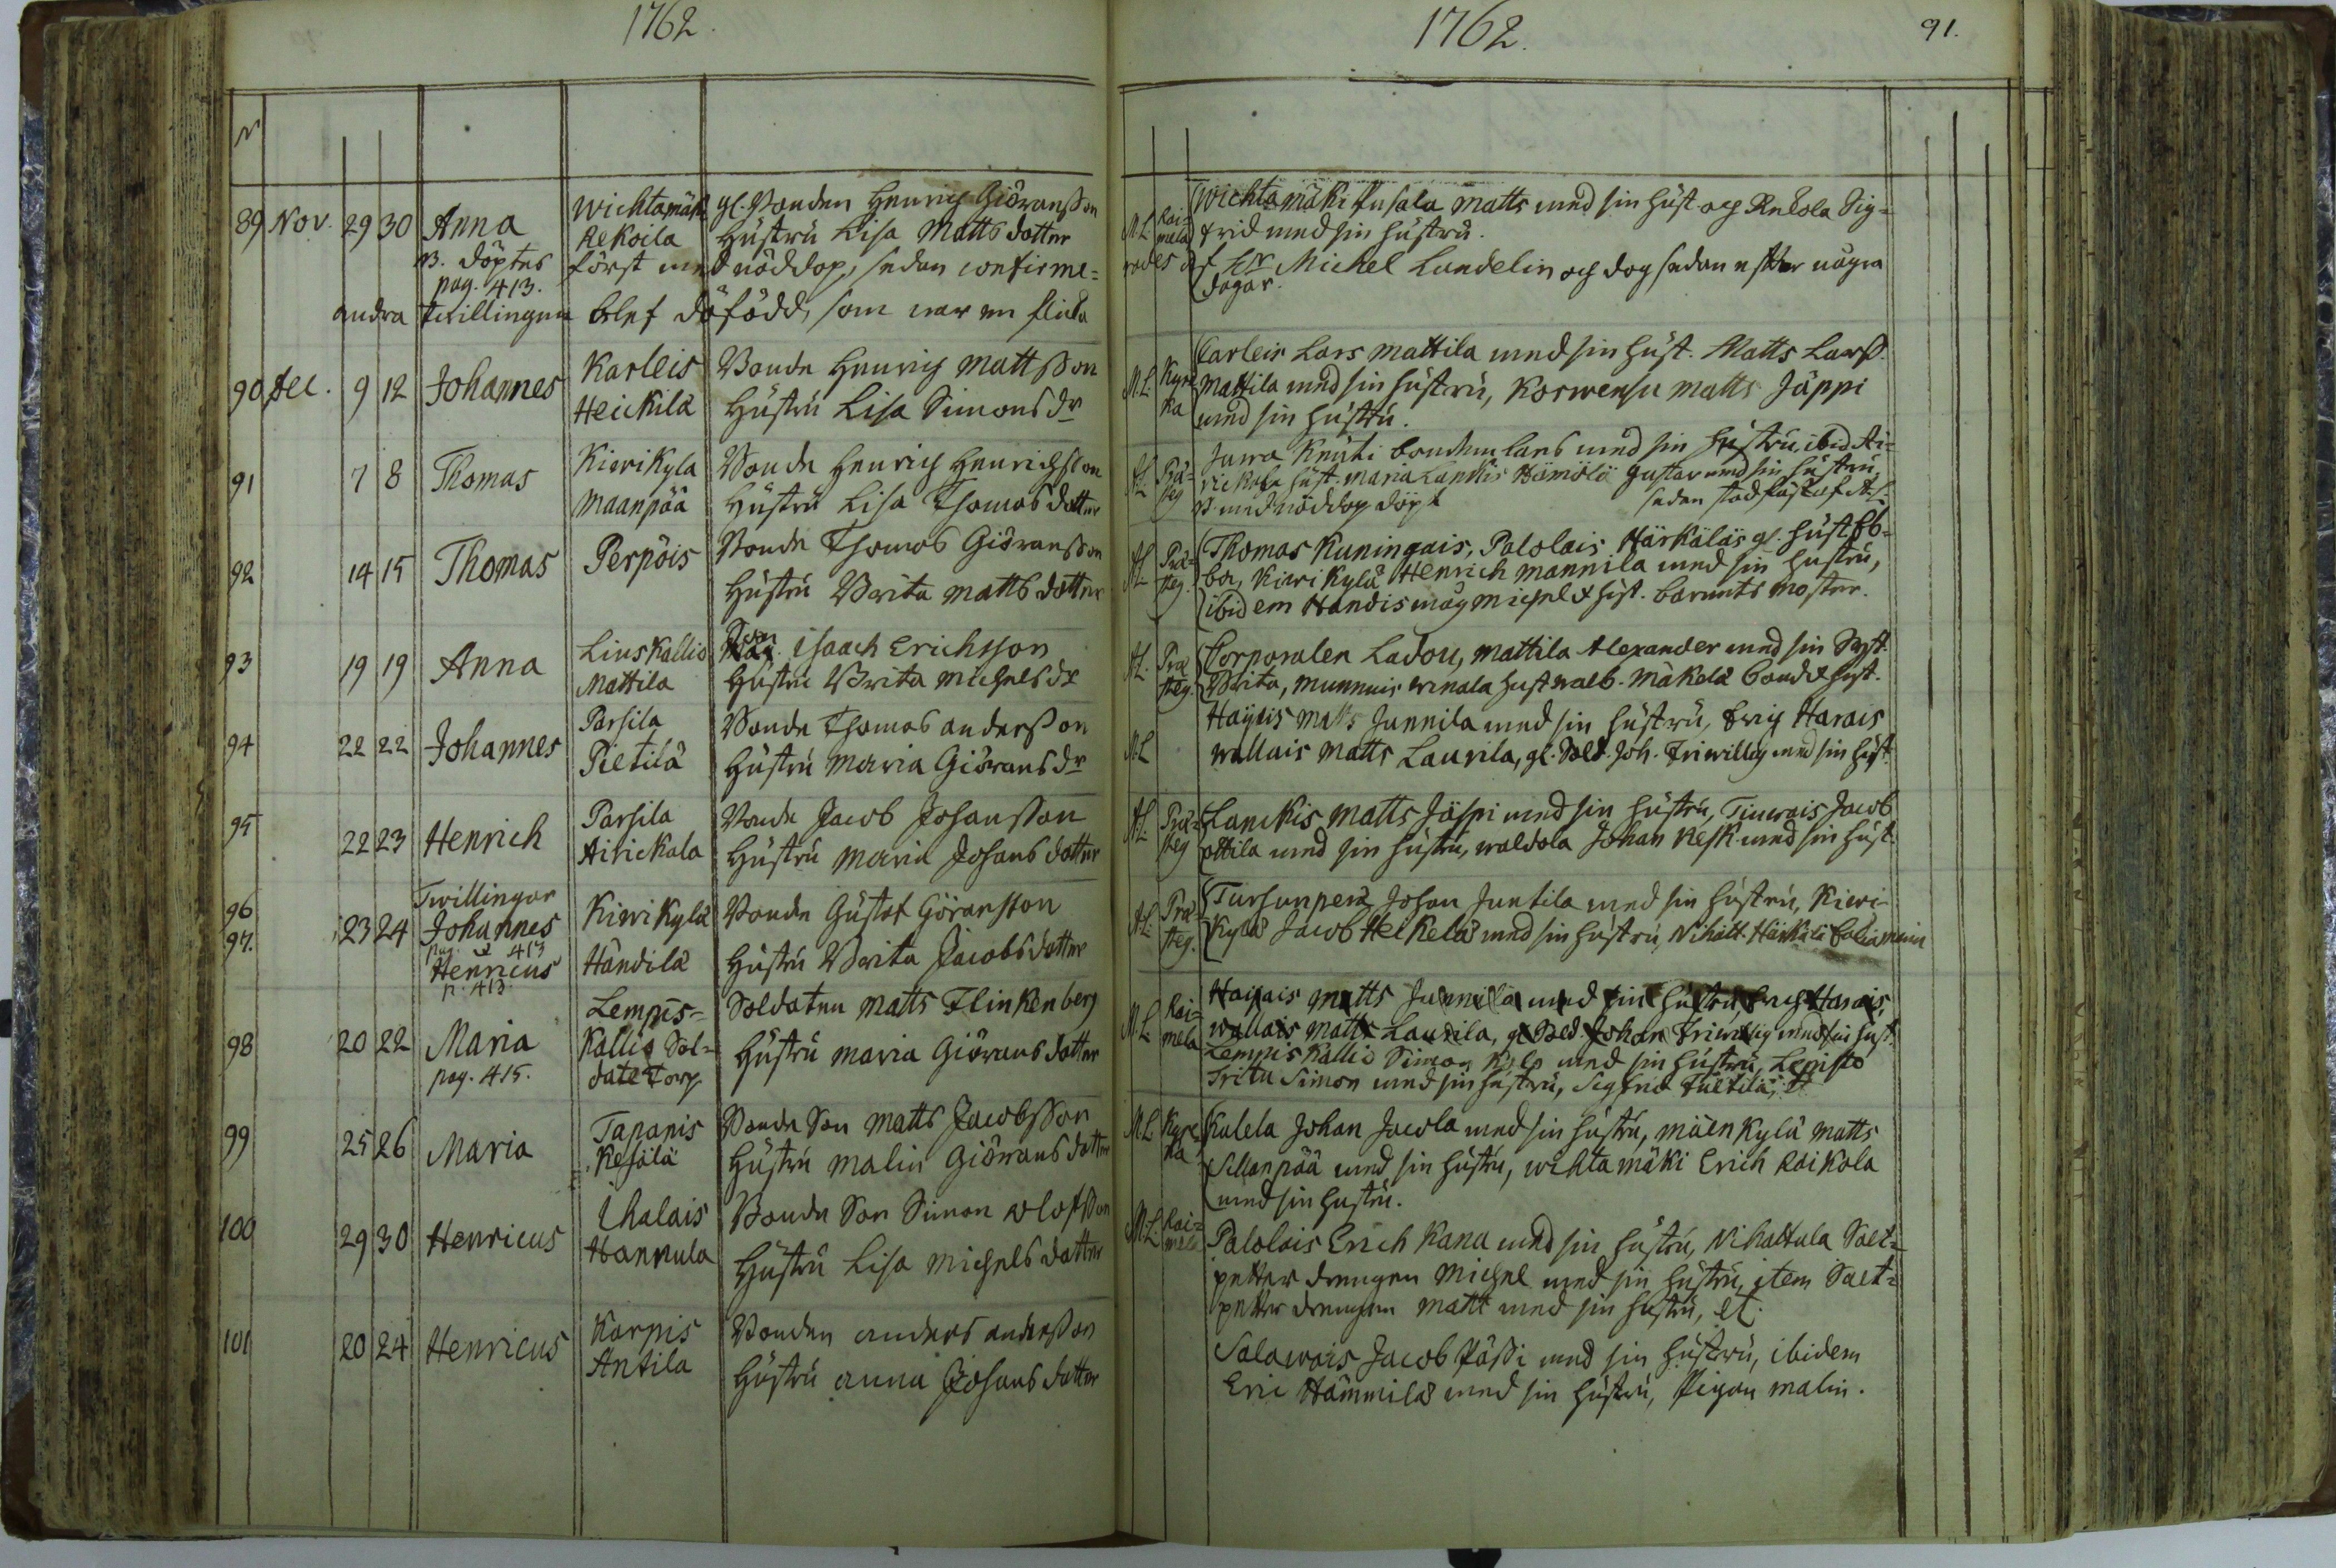 1762.
N
89 Nov. 29 30 Anna Wichtamäk gl. Bonden Henrich Giöransson
Rekoila Hustru Lisa Matts dotter
B. döptes först med nöddop, sedan confirme=
pag. 413.
andra twillingen blef dödfödd, som war en flicka
90 Dec. 9 12 Johannes Karleis Bonde Henrich Mattsson
Heickilä Hustru Lisa Simons dr
91 7 8 Thomas Kiwikyla Bonde Henrich Henrichsson
Maanpää Hustru Lisa Thomas dotter
92 14 15 Thomas Perpöis Bonde Thomas Giöransson
Hustru Brita Matts dotter
93 19 19 Anna Linskallio Isaach Erichsson
Mattila Hustru Brita Michels dr
94 22 22 Johannes Parsila Bonde Thomas Andersson
Pietilä Hustru Maria Giörans dr
95 22 23 Henrich Parsila Bonde Jacob Johansson
Airickala Hustru Maria Johans dotter
Twillingar
96 23 24 Johannes Kiwikylä Bonde Gustaf Göransson
97. pag. 413
Henricus Händilä Hustru Brita Jacobs dotter
p. 413.
98 20 22 Maria Lempis= Soldaten Matts Flinkenberg
Kallio Sol= Hustru Maria Giörans dotter
pag. 415. date Torp
99 25 26 Maria Tapanis Bonde Son Matts Jacobsson
Kesälä Hustru Malin Giörans dotter
100 29 30 Henricus Ihalais Bonde Son Simon Olofsson
Hannula Hustru Lisa Michels dotter
101 20 24 Henricus Karpis Bonden Anders Andersson
Antila Hustru Anna Johans dotter
1762. 91.
M.L. Rai= Wichtamäki Pusala Matts med sin hust. och Rekola Sig=
mela frid med sin hustru.
rades af Hr Michel Lundelin och dog sedan efter några
dagar.
Carleis Lars Mattila med sin hust. Matts Larss.
M.L. Kyrc Mattila med sin hustru, Korwensu Matts Jäppi
ka med sin hustru.
Juwa Knuti bonden Lars med sin hustru, ibid. Ai=
A.L. Præ= rickala hust. Maria Lankis Hömölö Gustav med sin hustru,
steg B. med nöddop döpt sedan stadfäst af A.L.
A.L. Præ= Thomas Kuningais, Palolais Härkäläs gl. hust. Eb=
steg. ba, Kiwikylä Henrich Mannila med sin hustru,
ibidem Handis måg Michel & hust. barnets moster.
A.L. Præ Corporalen Ladou, Mattila Alexander med sin Syst.
steg. Brita, Munnuis Winala hust. Walb. Mäkelä bond. & hust.
Haijais Matts Junnila med sin hustru, Erich Harais
M.L. Wallais Matts Laurila, gl. Sold. Joh. Friwillig med sin hust.
A.L. Præ= Lankis Matts Jäspi med sin hustru, Tinwais Jacob
steg Ottila med sin hustru, Waldola Johan Kesk. med sin hust.
A.L. Præ Tursunperä Johan Juntila med sin hustru, Kiwi-
steg. kylä Jacob Heikelä med sin hustru, Nihatt. Härkälä
M.L. Rai= Haijais Matts Junnila med sin hustru, Erich Harais,
mela Wallais Matts Laurila, gl Sold. Johan Friwillig med sin hust.
Lempis Kallio Simon Kylö med sin hustru, Lepistö
Fritu Simon med sin hustru, Sigfrid
M.L. Kyrc Kulela Johan Jacola med sin hustru, Mäenkylä Matts
ka Sillanpää med sin hustru, Wichtamäki Erich Raikola
med sin hustru.
M.L. Rai= Palolais Erich Kana med sin hustru, Nihattula Salt=
mela petter drengen Michel med sin hustru, item Salt=
petter drengen Matt med sin hustru, et.
Salawais Jacob Pässi med sin hustru, ibidem
Eric Hämmilä med sin hustru, Pigan Malin.